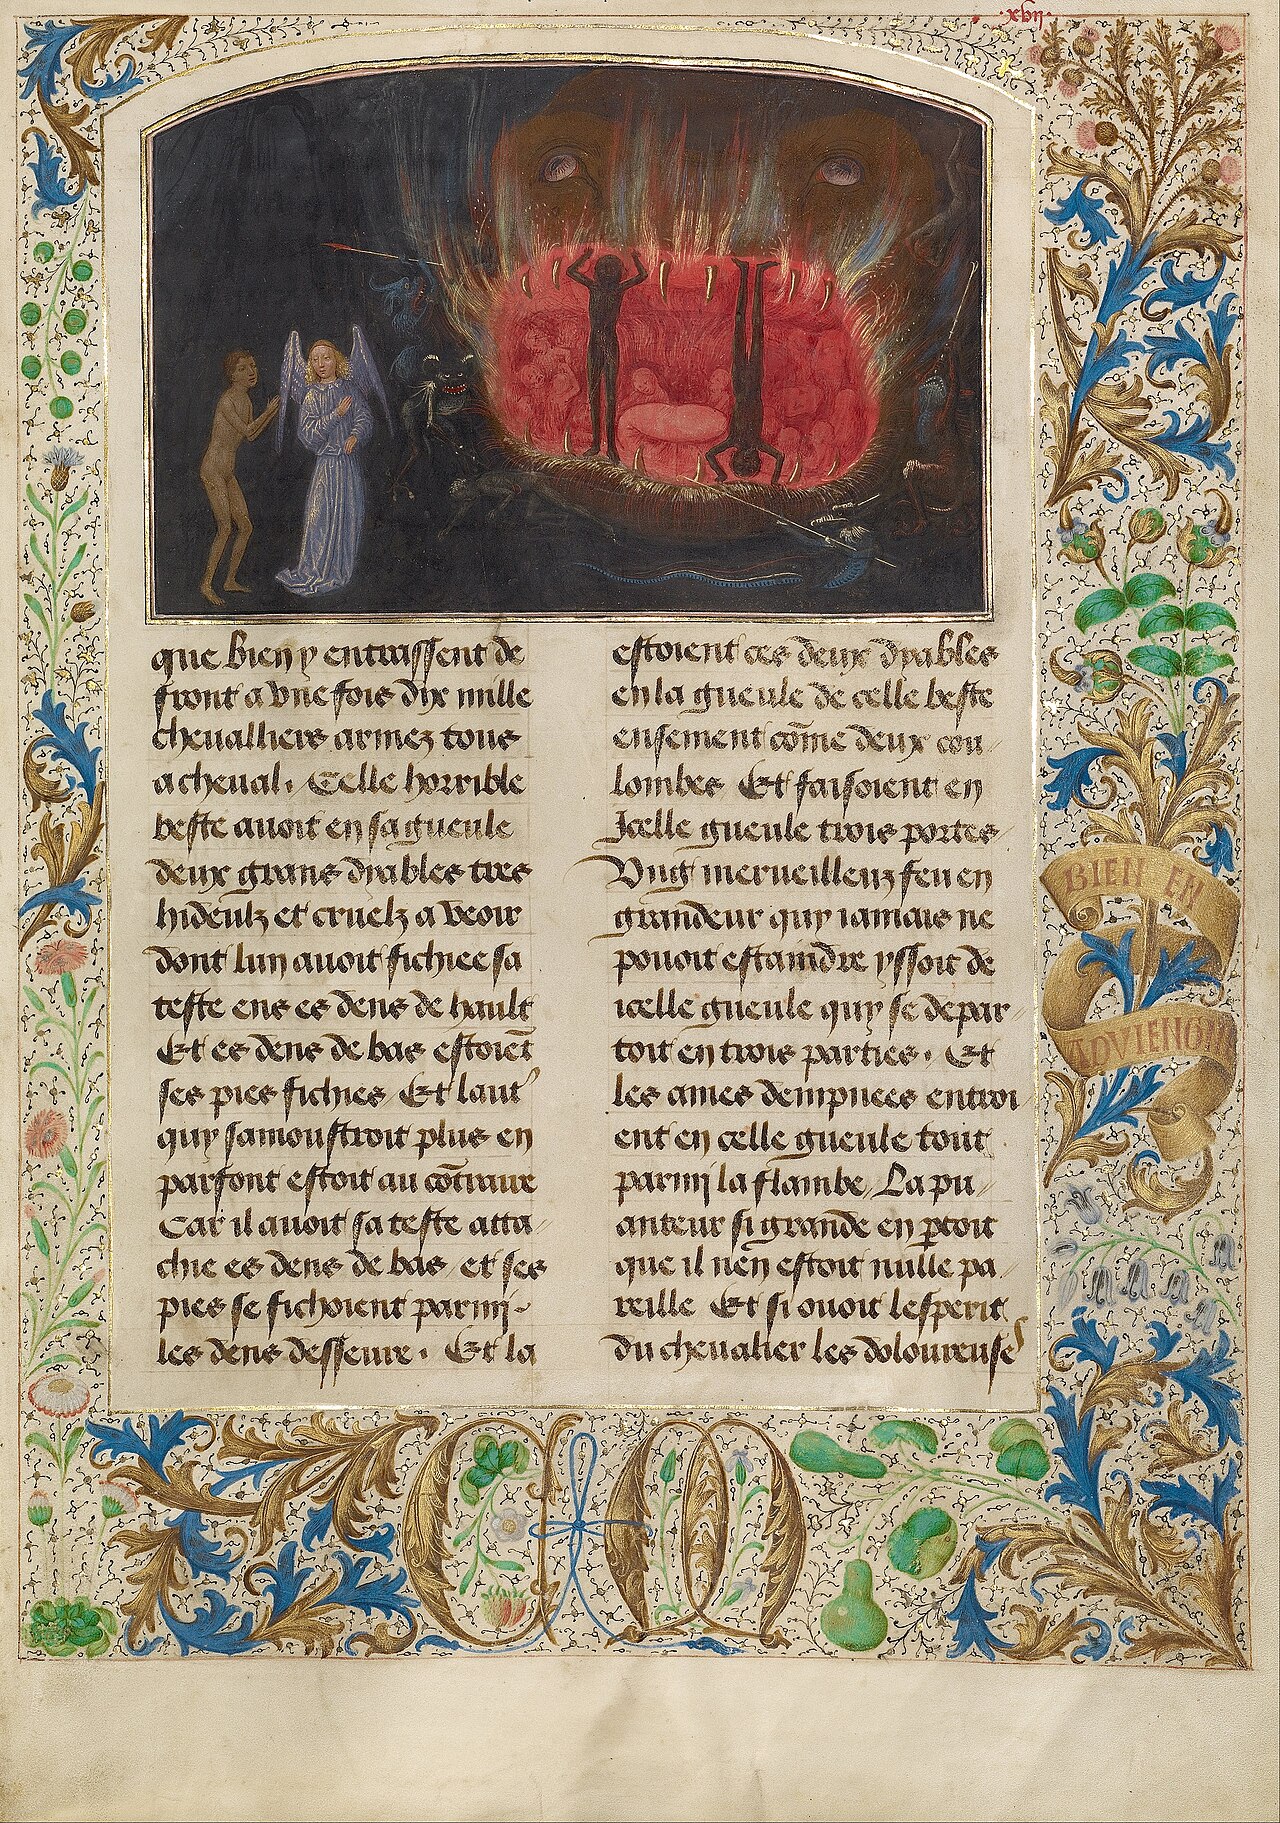 .xvij.
que bien y entraissent de
front a vne fois dix mille
cheualliers armez tous
a cheual. Celle horrible
beste auoit en sa gueule
deux grans dyables tres
hideulz et cruelz a veoir
dont lun auoit fichiee sa
teste ens es dens de hault
Et es dens de bas estoiẽt
ses pies fichies Et laut'
quy samoustroit plus en
parfont estoit au cõtraire
Car il auoit sa teste atta/
chie es dens de bas / et ses
pies se fichoient parmj-
les dens desseure. Et la
estoient ces deux dyables
en la gueule de celle beste
ensement cõme deux cou/
lombes Et faisoient en
Icelle gueule trois portes/
Vng merueilleuz feu en
grandeur quy iamais ne
pouoit estaindre yssoit de
icelle gueule quy se depar
toit en trois parties. Et
les ames dempnees entroi
ent en celle gueule tout
parmj la flambe / La pu/
anteur si grande en ꝑtoit
que il nen estoit nulle pa/
reille Et si ouoit lesperit
du cheualier les doloureuse
BIEN EN
ADVIENGNE